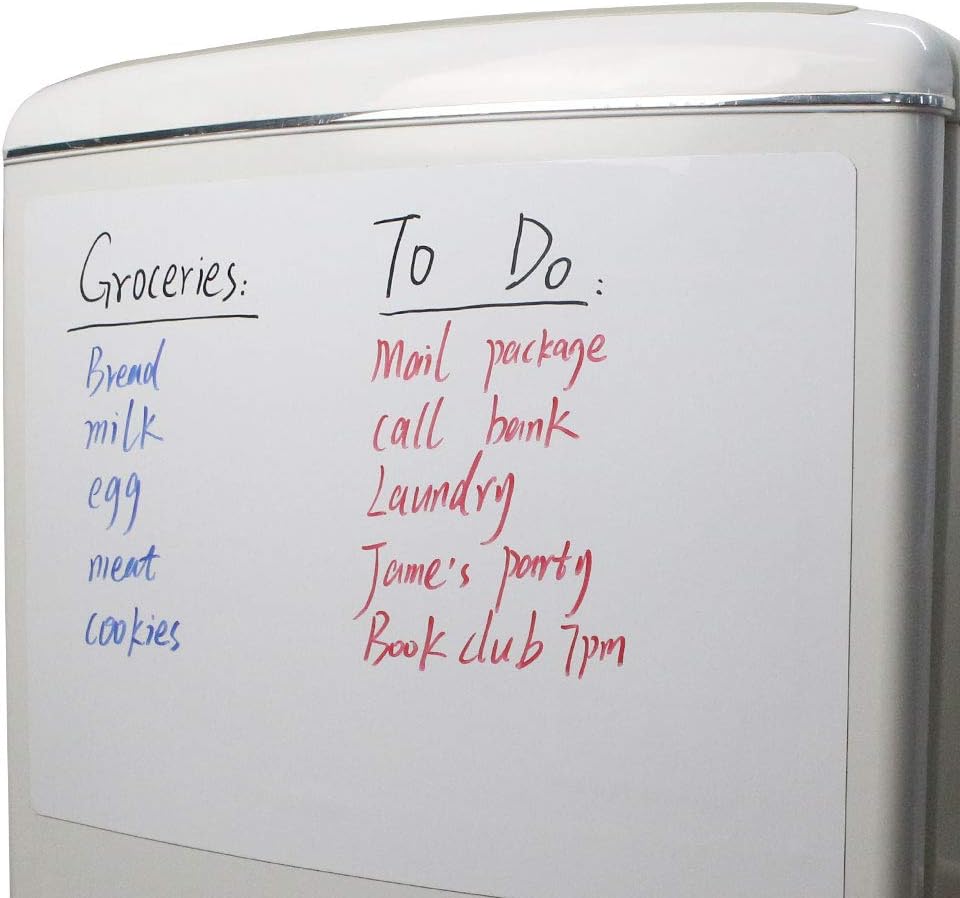 Groceries:
Bread
milk
egg
meat
cookies
To Do:
Mail package
call bank
Laundry
Jame's party
Book club 7pm